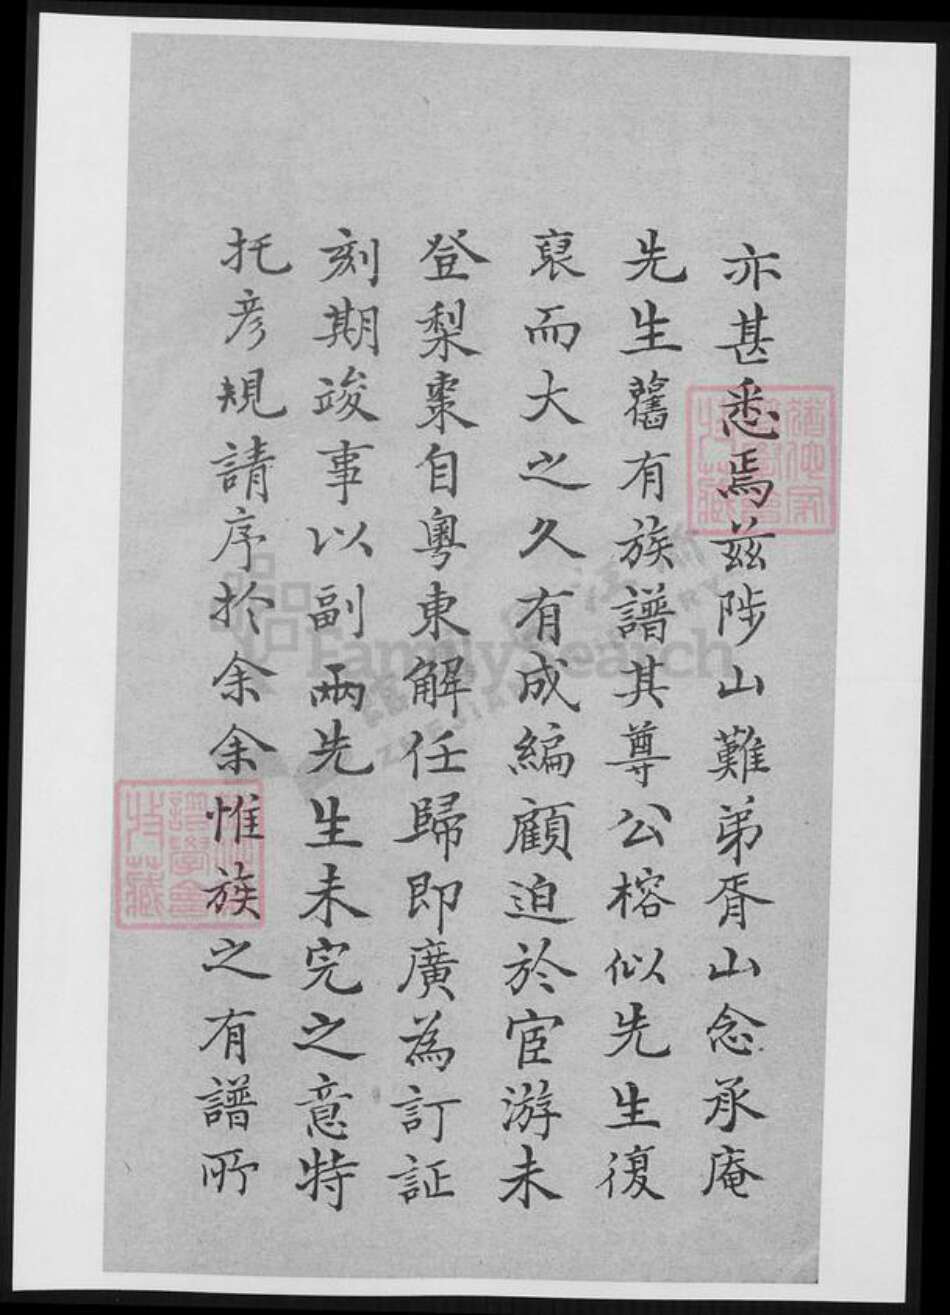 亦甚悉焉兹陟山難弟胥山念承庵
先生舊有族譜其尊公榕似先生復
裒而大之久有成編顧迫於宦游未
登梨棗自粵東解任歸即廣為訂証
刻期竣事以副兩先生未完之意特
托彦規請序於余余惟族之有譜所
譜學會
收藏
FamilySearch